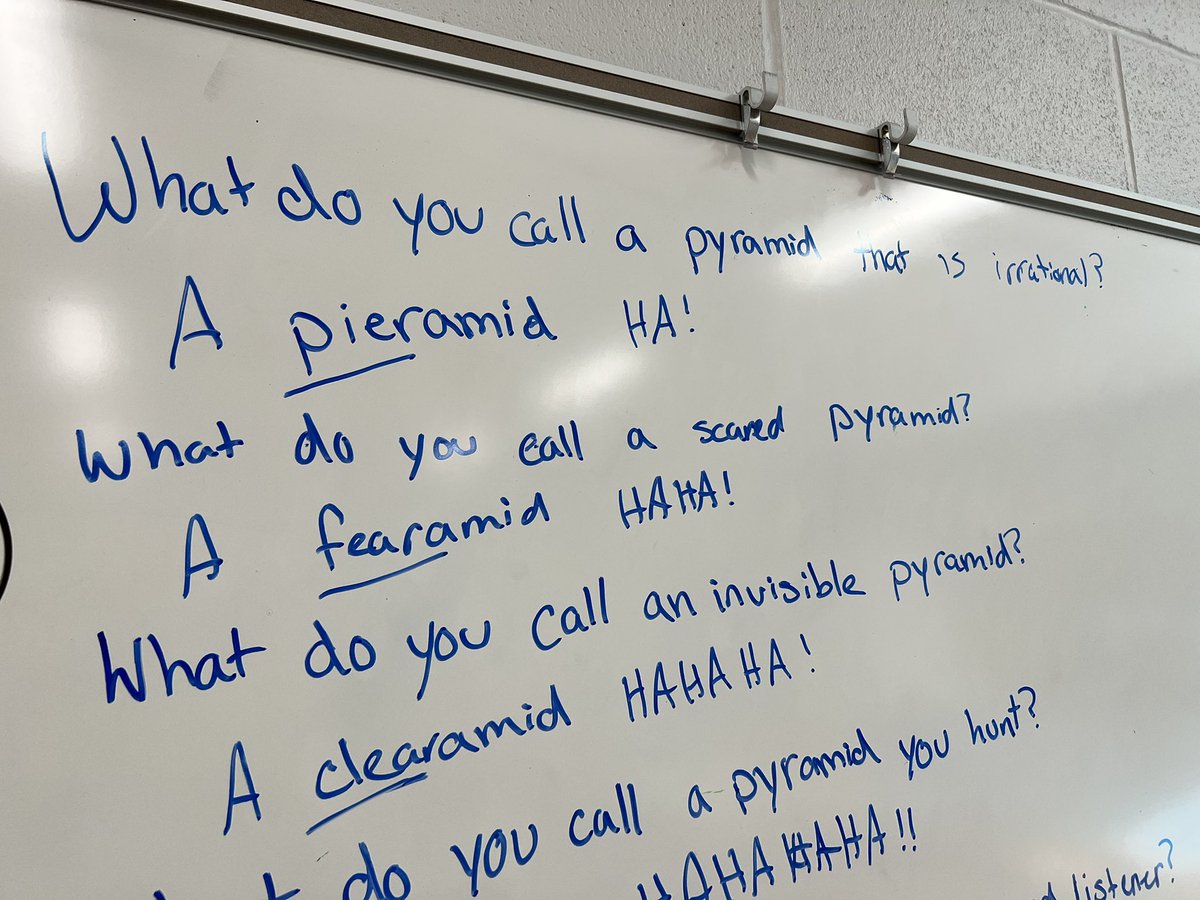 What do you call a pyramid that is irrational?
A pieramid HA!
What do you call a scared pyramid?
A fearamid HAHA!
What do you call an invisible pyramid?
A clearamid HAHAHA!
What do you call a pyramid you hunt?
HAHAHAHA!!
listener?